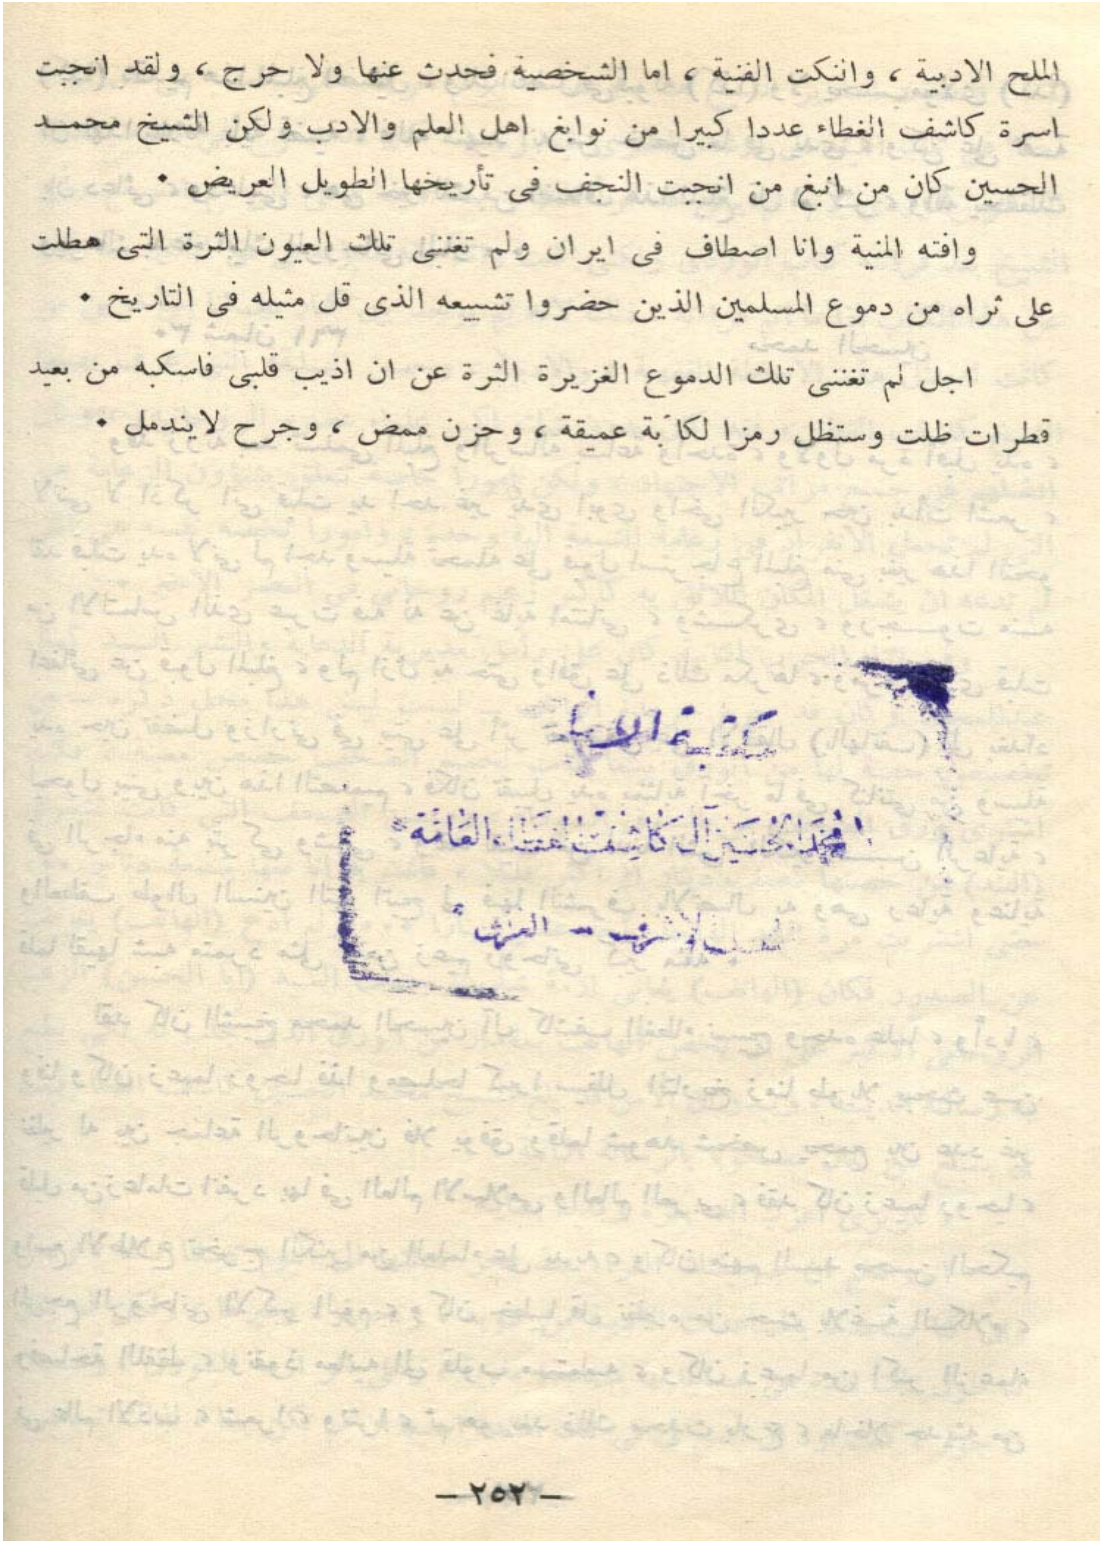 الملح الادبية ، والنكت الفنية ، اما الشخصية فحدث عنها ولا حرج ، ولقد انجبت
اسرة كاشف الغطاء عددا كبيرا من نوابغ اهل العلم والادب ولكن الشيخ محمــد
الحسين كان من انبغ من انجبت النجف فى تأريخها الطويل العريض ٠
وافته المنية وانا اصطاف فى ايران ولم تغننى تلك العيون الثرة التى هطلت
على ثراه من دموع المسلمين الذين حضروا تشييعه الذى قل مثيله فى التاريخ ٠
اجل لم تغننى تلك الدموع الغزيرة الثرة عن ان اذيب قلبى فاسكبه من بعيد
قطرات ظلت وستظل رمزا لكآبة عميقة ، وحزن ممض ، وجرح لايندمل ٠
مكتبة
محمد الحسين آل كاشف الغطاء العامة
الاشرف -
— ٢٥٢ —